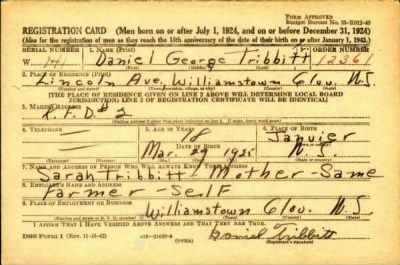 FORM APPROVED
Budget Bureau No. 33-R012-42
REGISTRATION CARD (Men born on or after July 1, 1924, and on or before December 31, 1924)
(Also for the registration of men as they reach the 18th anniversary of the date of their birth on or after January 1, 1943.)
SERIAL NUMBER 1. NAME (Print) ORDER NUMBER
W Daniel George Tribbitt 12361
2. PLACE OF RESIDENCE (Print)
Lincoln Ave, Williamstown Glou. N.J.
[THE PLACE OF RESIDENCE GIVEN ON LINE 2 ABOVE WILL DETERMINE LOCAL BOARD
JURISDICTION; LINE 2 OF REGISTRATION CERTIFICATE WILL BE IDENTICAL]
3. MAILING ADDRESS
R.F.D. #2
4. TELEPHONE 5. AGE IN YEARS 6. PLACE OF BIRTH
18 Janvier
DATE OF BIRTH
Mar. 29 1925 N.J.
7. NAME AND ADDRESS OF PERSON WHO WILL ALWAYS KNOW YOUR ADDRESS
Sarah Tribbitt Mother-Same
8. EMPLOYER'S NAME AND ADDRESS
Farmer-Self
9. PLACE OF EMPLOYMENT OR BUSINESS
Williamstown Glou. N.J.
I AFFIRM THAT I HAVE VERIFIED ABOVE ANSWERS AND THAT THEY ARE TRUE.
DSS Form 1 (Rev. 11-16-42) (OVER) Daniel Tribbitt
(Registrant's signature)